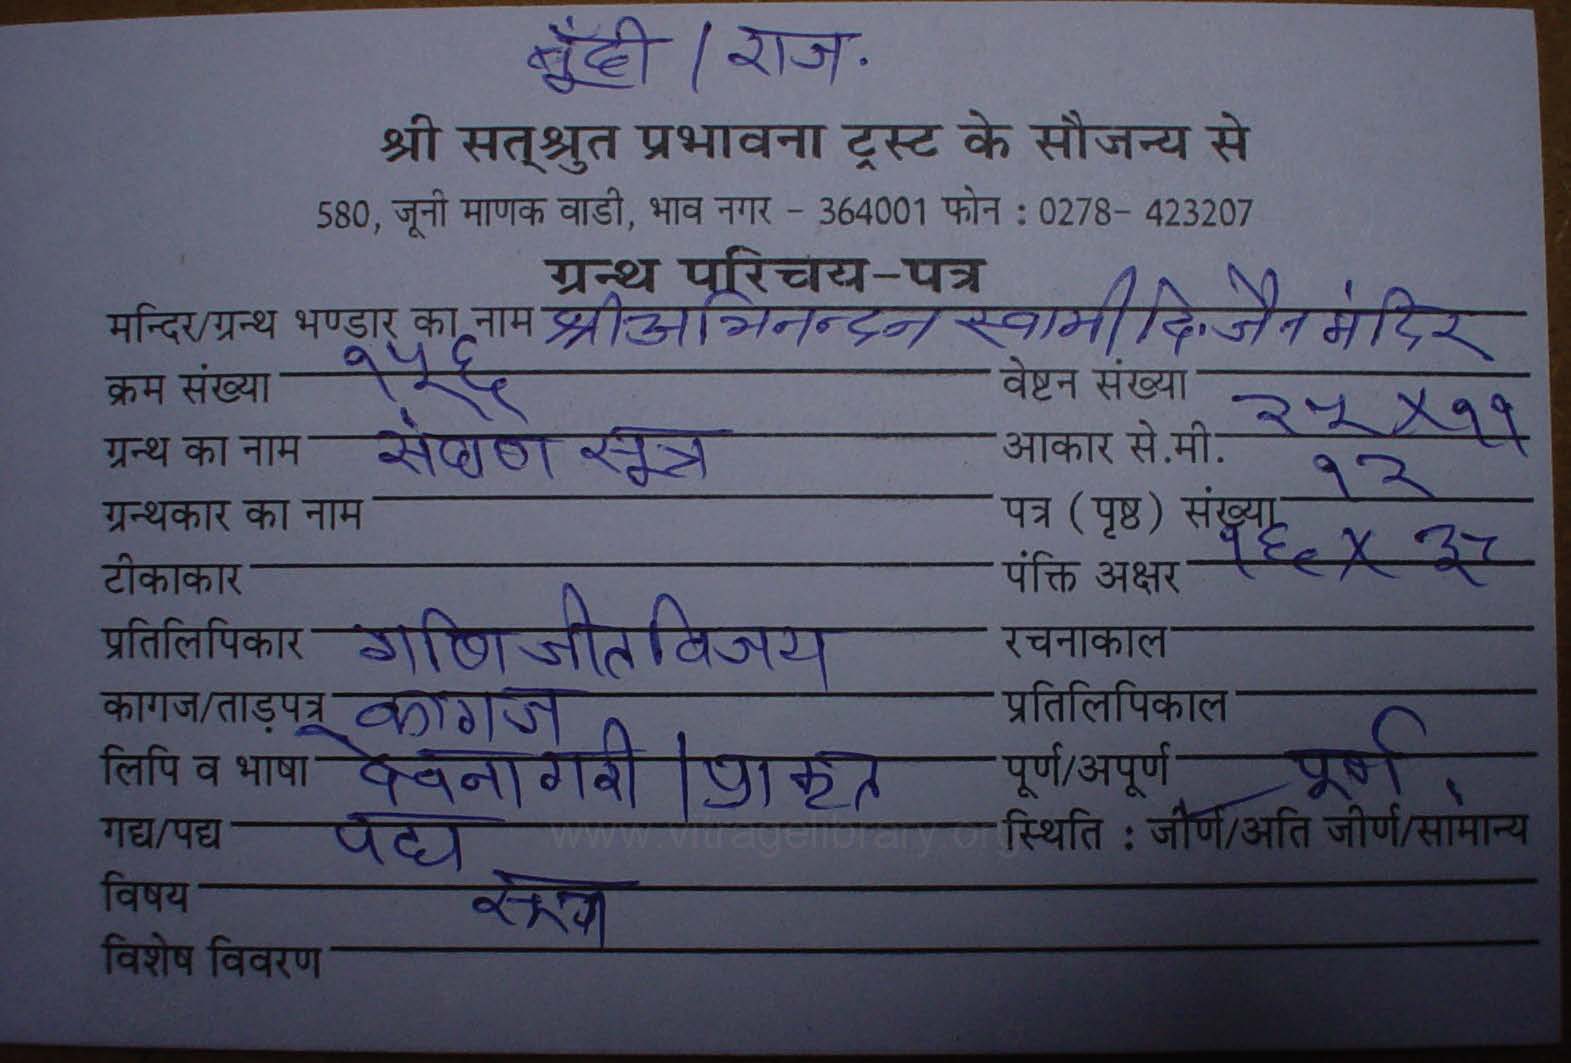 बूँदी / राज.
श्री सत्श्रुत प्रभावना ट्रस्ट के सौजन्य से
580, जूनी माणक वाडी, भाव नगर – 364001 फोन : 0278– 423207
ग्रन्थ परिचय-पत्र
मन्दिर/ग्रन्थ भण्डार का नाम श्री अभिनन्दन स्वामी दि. जैन मंदिर
क्रम संख्या १५६ वेष्टन संख्या
ग्रन्थ का नाम सूत्र आकार से.मी. २५ X ११
ग्रन्थकार का नाम पत्र ( पृष्ठ ) संख्या १२
टीकाकार पंक्ति अक्षर १६ X
प्रतिलिपिकार गणि जीत विजय रचनाकाल
कागज/ताड़पत्र कागज प्रतिलिपिकाल
लिपि व भाषा देवनागरी | प्राकृत पूर्ण/अपूर्ण पूर्ण
गद्य/पद्य पद्य स्थिति : जीर्ण/अति जीर्ण/सामान्य
विषय सूत्र
विशेष विवरण
www.vitragelibrary.org